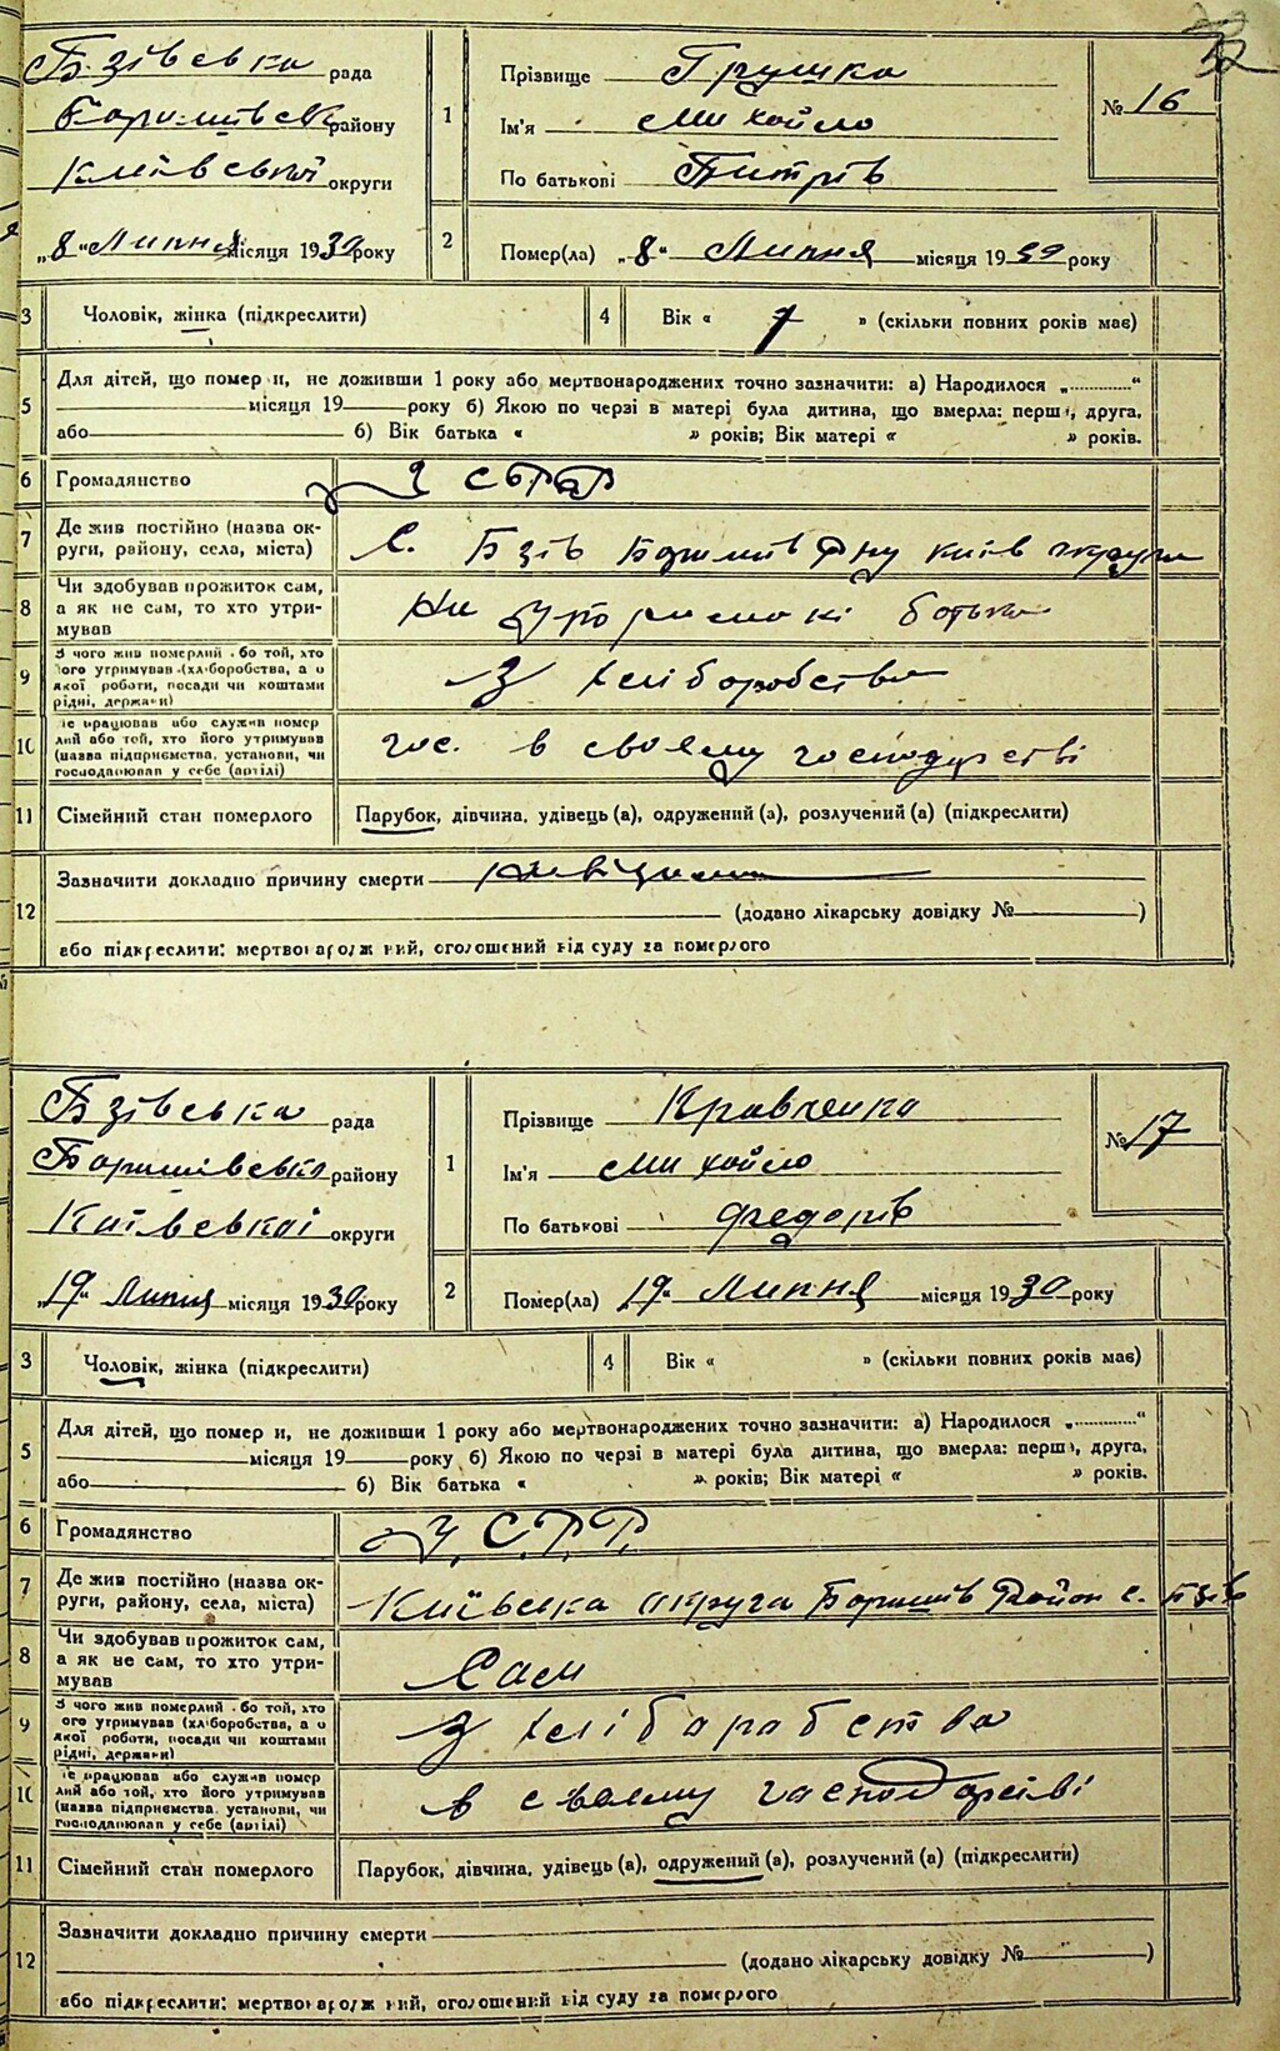 Бзівська рада
Баришівськ району
Київської округи
„8" Липня місяця 1930 року
1
Прізвище Грушка
Ім'я Михайло
По батькові Питрів
№ 16
2
Помер(ла) „8" Липня місяця 1930 року
3 Чоловік, жінка (підкреслити)
4 Вік « 7 » (скільки повних років має)
5 Для дітей, що помер и, не доживши 1 року або мертвонароджених точно зазначити: а) Народилося „............"
місяця 19 року б) Якою по черзі в матері була дитина, що вмерла: перш , друга,
або б) Вік батька « » років; Вік матері « » років.
6 Громадянство УСРР
7 Де жив постійно (назва ок-
руги, району, села, міста) с. Бзів Баришів Рну київ округи
8 Чи здобував прожиток сам,
а як не сам, то хто утри-
мував На уторимані батька
9 З чого жив померлий . бо той, хто
його угримував (хліборобства, а о
якої роботи, посади чи коштами
рідні, держави) З хліборобства
10 е працював або служив помер
лий або той, хто його утримував
(назва підприємства, установи, чи
господарював у себе (артілі) гос. в своєму господарстві
11 Сімейний стан померлого Парубок, дівчина, удівець (а), одружений (а), розлучений (а) (підкреслити)
12 Зазначити докладно причину смерти
(додано лікарську довідку № )
або підкреслити: мертвонароджений, оголошений від суду за померлого
Бзівська рада
Баришівська району
Київської округи
„19" Липня місяця 1930 року
1
Прізвище Кравченко
Ім'я Михайло
По батькові Федорів
№ 17
2
Помер(ла) 19" Липня місяця 1930 року
3 Чоловік, жінка (підкреслити)
4 Вік « » (скільки повних років має)
5 Для дітей, що помер и, не доживши 1 року або мертвонароджених точно зазначити: а) Народилося „............"
місяця 19 року б) Якою по черзі в матері була дитина, що вмерла: перш , друга,
або б) Вік батька « » років; Вік матері « » років.
6 Громадянство У.С.Р.Р.
7 Де жив постійно (назва ок-
руги, району, села, міста) Київська округа Баришів Район с. Бзів
8 Чи здобував прожиток сам,
а як не сам, то хто утри-
мував Сам
9 З чого жив померлий . бо той, хто
ого угримував (хліборобства, а о
якої роботи, посади чи коштами
рідні, держави) З хлібарабства
10 е працював або служив помер
лий або той, хто його утримував
(назва підприємства, установи, чи
господарював у себе (артілі) в своєму господарстві
11 Сімейний стан померлого Парубок, дівчина, удівець (а), одружений (а), розлучений (а) (підкреслити)
12 Зазначити докладно причину смерти
(додано лікарську довідку № )
або підкреслити: мертвонароджений, оголошений від суду за померлого